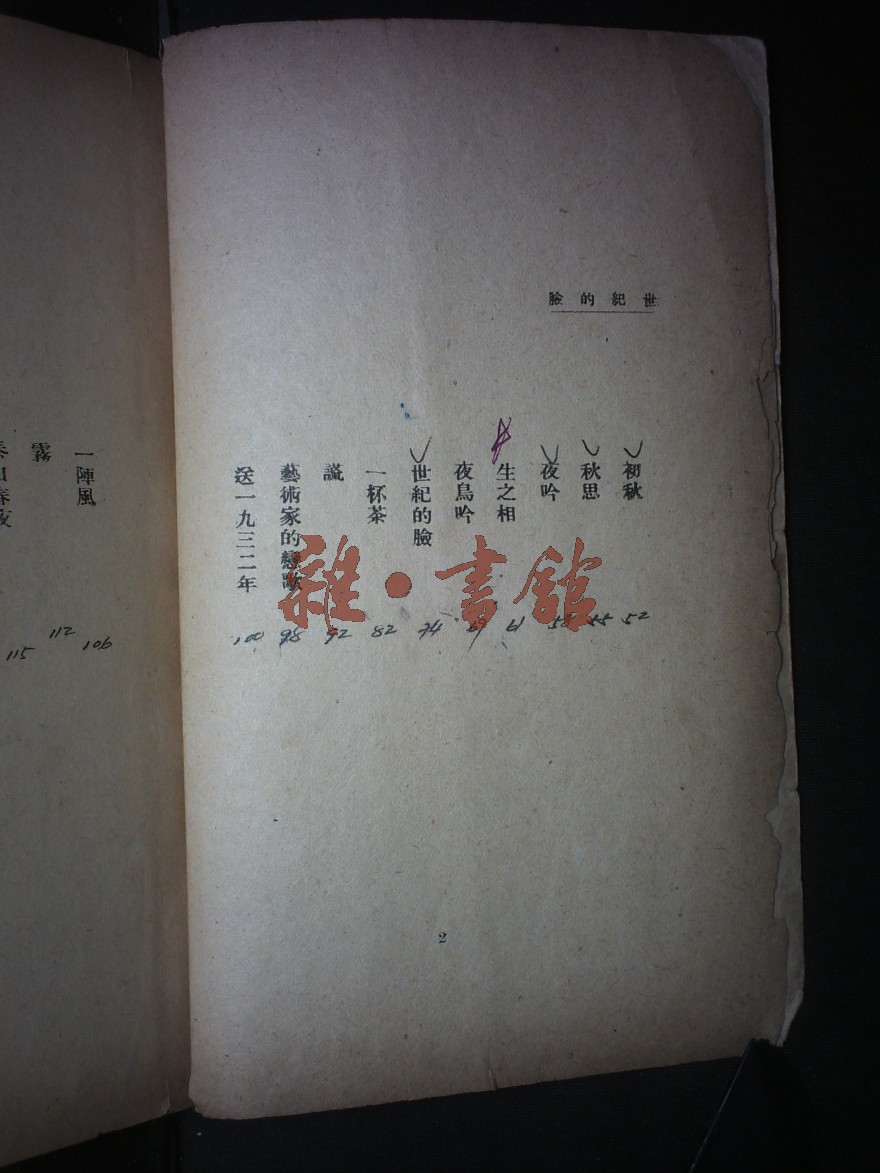 世紀的臉
初秋 52
秋思 55
夜吟 58
生之相 61
夜鳥吟
世紀的臉 74
一杯茶 82
謊 92
藝術家的戀歌 98
送一九三二年 100
2
一陣風 106
霧 112
115
雜·書館